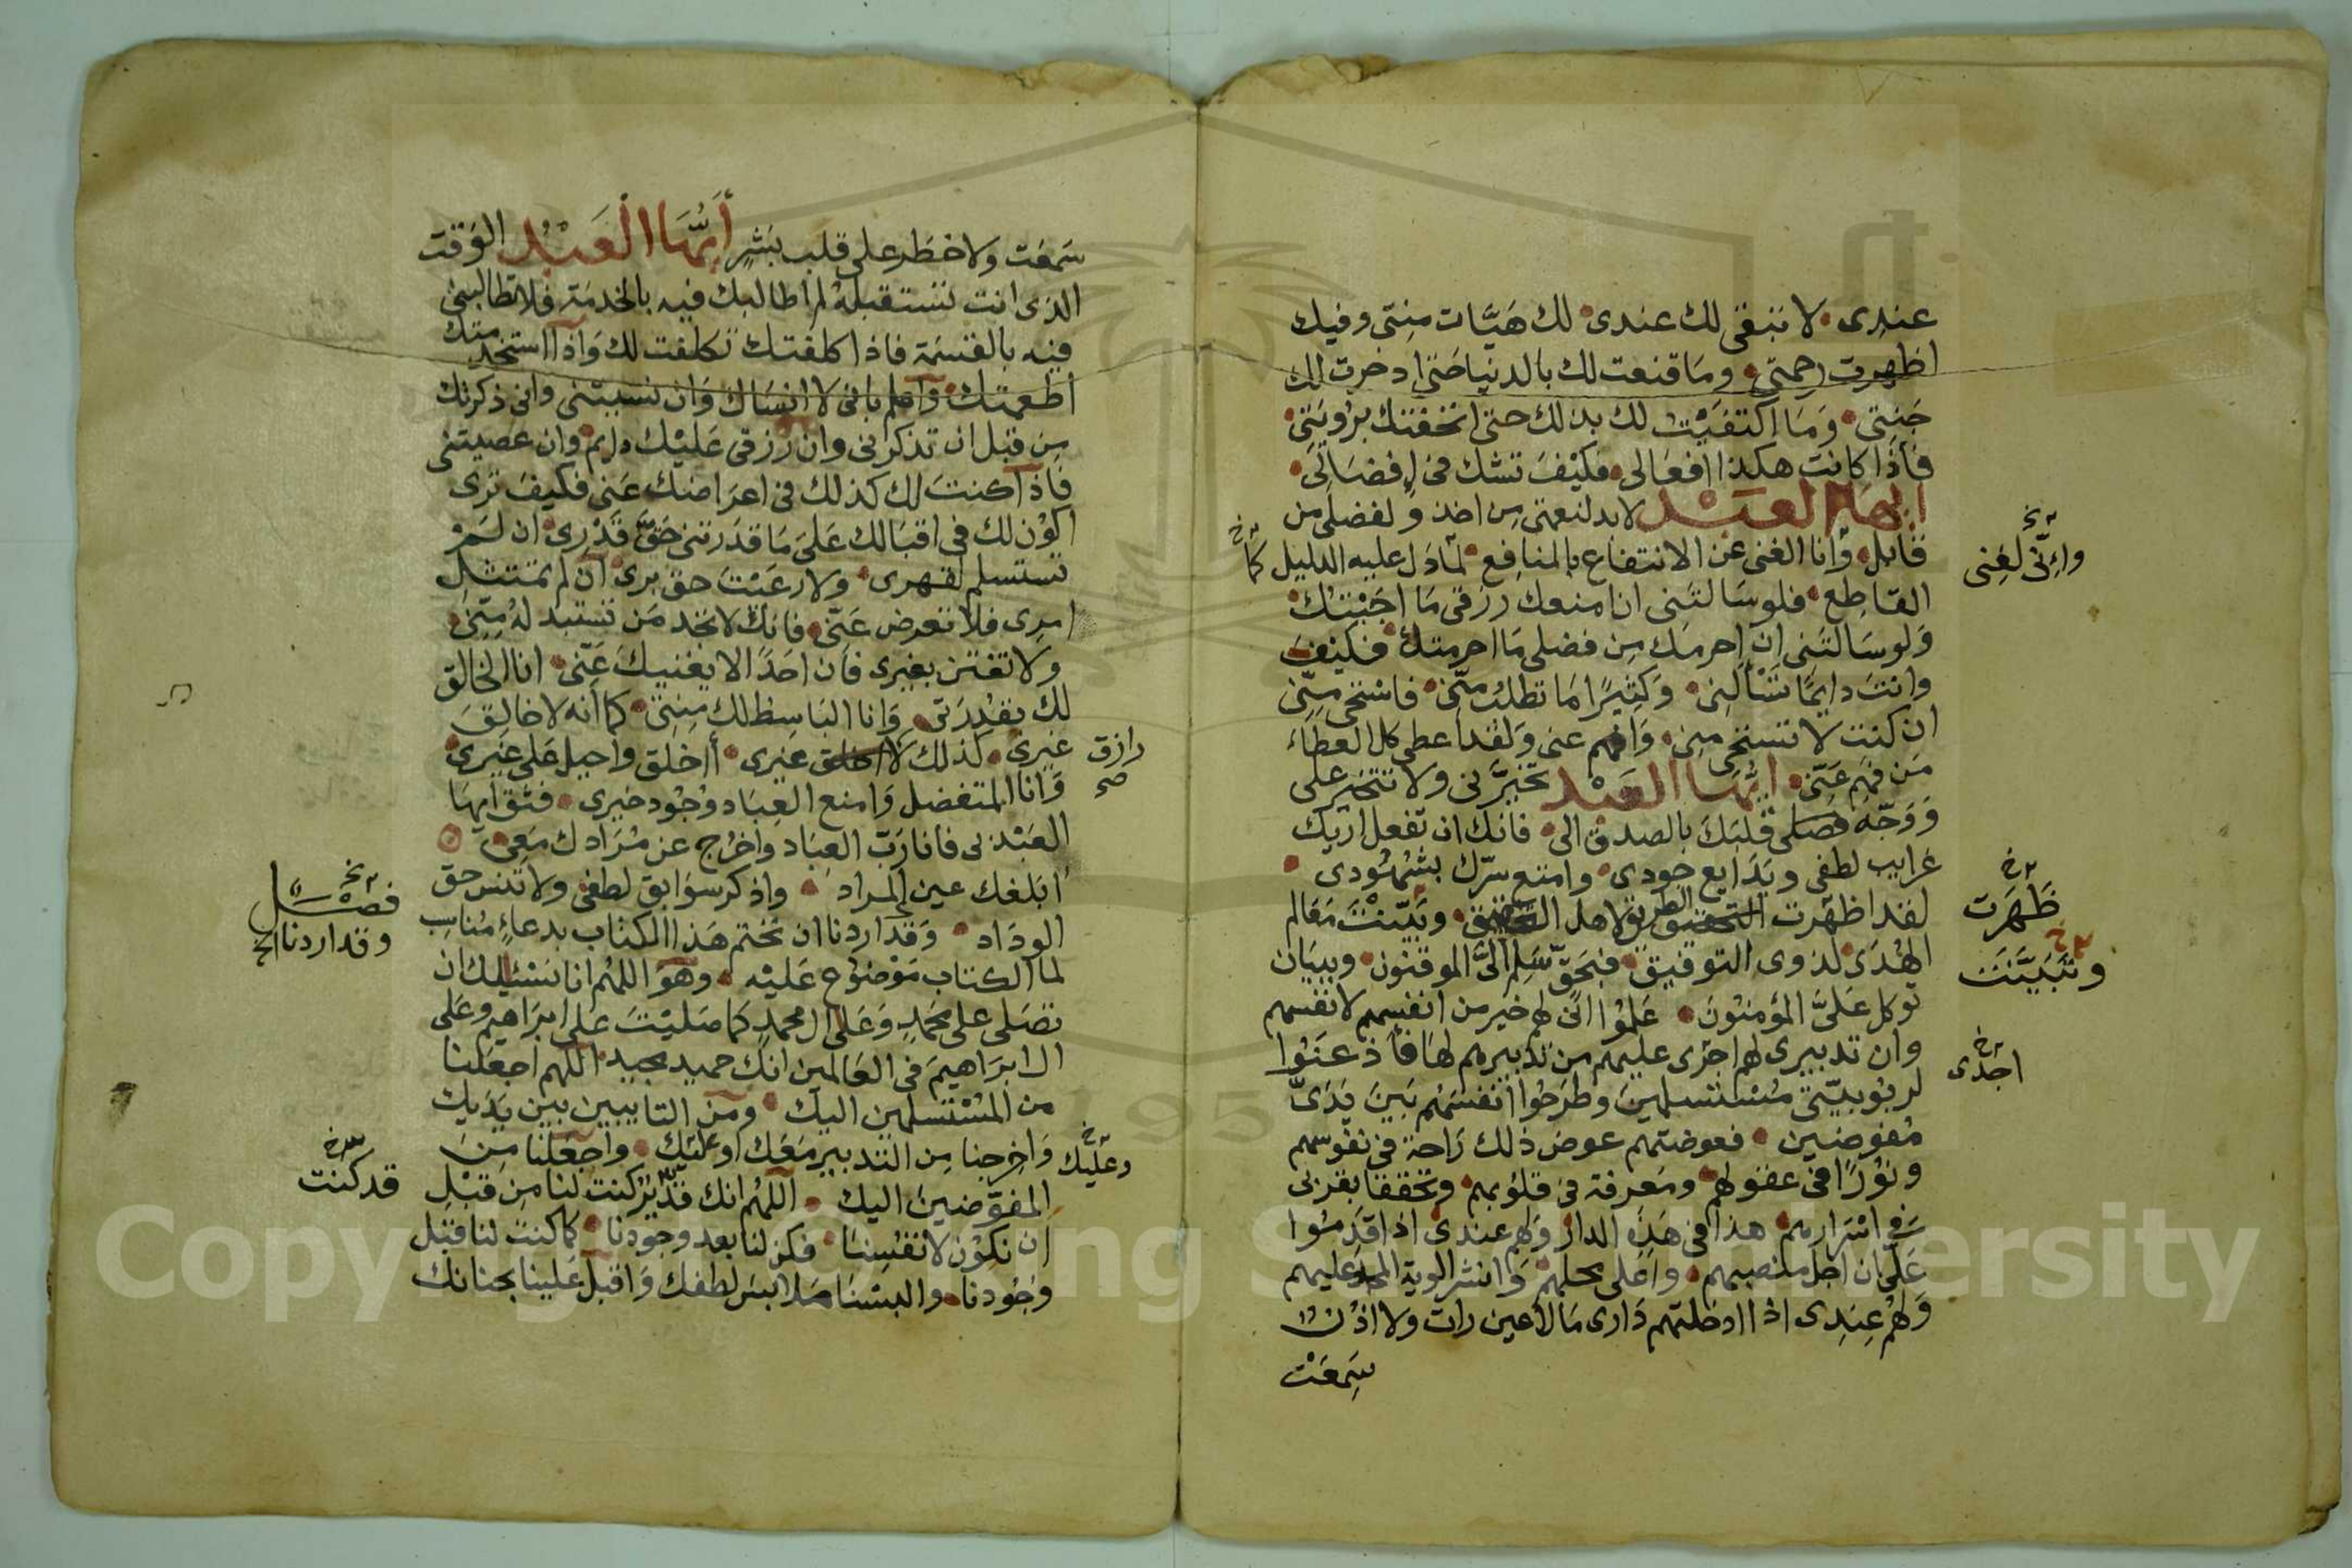 عندى لا تبقى لك عندى لك هيّات منتى وفيك
اظهرت رحمتى وما قنعت لك بالدنيا حتى ادخرت لك
جنتى وما اكتفيت لك بذلك حتى اتحفتك برويتى
فاذا كانت هكذا افعالى فكيف تشك فى افضالى
ايها العبد لابد لنعمتى من اخذ ولفضلى من
قابل وانا الغنى عن الانتفاع بالمنافع لما دل عليه الدليل
القاطع فلو سالتنى ان امنعك رزقى ما اجبتك
ولو سالتنى ان احرمك من فضلى ما احرمتك فكيف
وانت دايما تسألنى وكثيرا ما تطلب منى فاستحى منى
ان كنت لا تستحى منى وافهم عنى ولقد اعطى كل العطاء
من فهم عنى ايها العبد تخيرنى ولا تتخير على
ووجه قلبك بالصدق الى فانك ان تفعل اريك
غرايب لطفى وبدايع جودى وامتع سرك بشهودى
لقد اظهرت الطريق لاهل التحقيق وبينت معالم
الهدى لذوى التوفيق فبحق سلم الىّ الموقنون وببيان
توكل علىّ المؤمنون علموا انى لهم خير من انفسهم لانفسهم
وان تدبيرى لهم اجرى عليهم من تدبيرهم لها فأذعنوا
لربوبيتى مستسلمين وطرحوا انفسهم بين يدىّ
مفوضين فعوضتهم عوض ذلك راحة فى نفوسهم
ونورا فى عقولهم ومعرفة فى قلوبهم وتحققا بقربى
فى اسرارهم هذا فى هذه الدار ولهم عندى اذا قدموا
علىّ ان اجل منصبهم واعلى محلهم وانشر الوية المجد عليهم
ولهم عندى اذا ادخلتهم دارى ما لا عين رات ولا اذن
سمعت
وانّى لغنى
كما
ظهرت
وتبيّنت
اجدى
سمعت ولا خطر على قلب بشر أيها العبد الوقت
الذى انت تستقبله لم اطالبك فيه بالخدمة فلا تطالبنى
فيه بالقسمة فاذا كلفتك تكلفت لك واذا استخدمتك
اطعمتك واعلم بانى لا انساك وان نسيتنى وانى ذكرتك
من قبل ان تذكرنى وان رزقى عليك دايم وان عصيتنى
فاذا كنت لك كذلك فى اعراضك عنى فكيف ترى
اكون لك فى اقبالك على ما قدرتنى حق قدرى ان لم
تستسلم لقهرى ولا رعيت حق برى ان لم تمتثل
امرى فلا تعرض عنى فانك لا تجد من تستبدله منى
ولا تفتتن بغيرى فان احدا لا يغنيك عنى انا الخالق
لك بقدرتى وانا الباسط لك منتى كما أنه لا خالق
غيرى كذلك لا غيرى أأخلق واحيل على غيرى
وانا المتفضل وامنع العباد وجود خيرى فثق ايها
العبد بى فانا رب العباد واخرج عن مرادك معى
ابلغك عين المراد واذكر سوابق لطفى ولا تنس حق
الوداد وقد اردنا ان نختم هذا الكتاب بدعاء مناسب
لما الكتاب موضوع عليه وهو اللهم انا نسئلك ان
تصلى على محمد وعلى ال محمد كما صليت على ابراهيم وعلى
ال ابراهيم فى العالمين انك حميد مجيد اللهم اجعلنا
من المستسلمين اليك ومن التايبين بين يديك
واخرجنا من التدبير معك او عليك واجعلنا من
المفوضين اليك اللهم انك كنت لنا من قبل
ان نكون لانفسنا فكن لنا بعد وجودنا كما كنت لنا قبل
وجودنا والبسنا ملابس لطفك واقبل علينا بحنانك
رازق
صح
فصل
وقد اردنا الخ
وعليك
قد كنت
Copyright © King Saud University
195